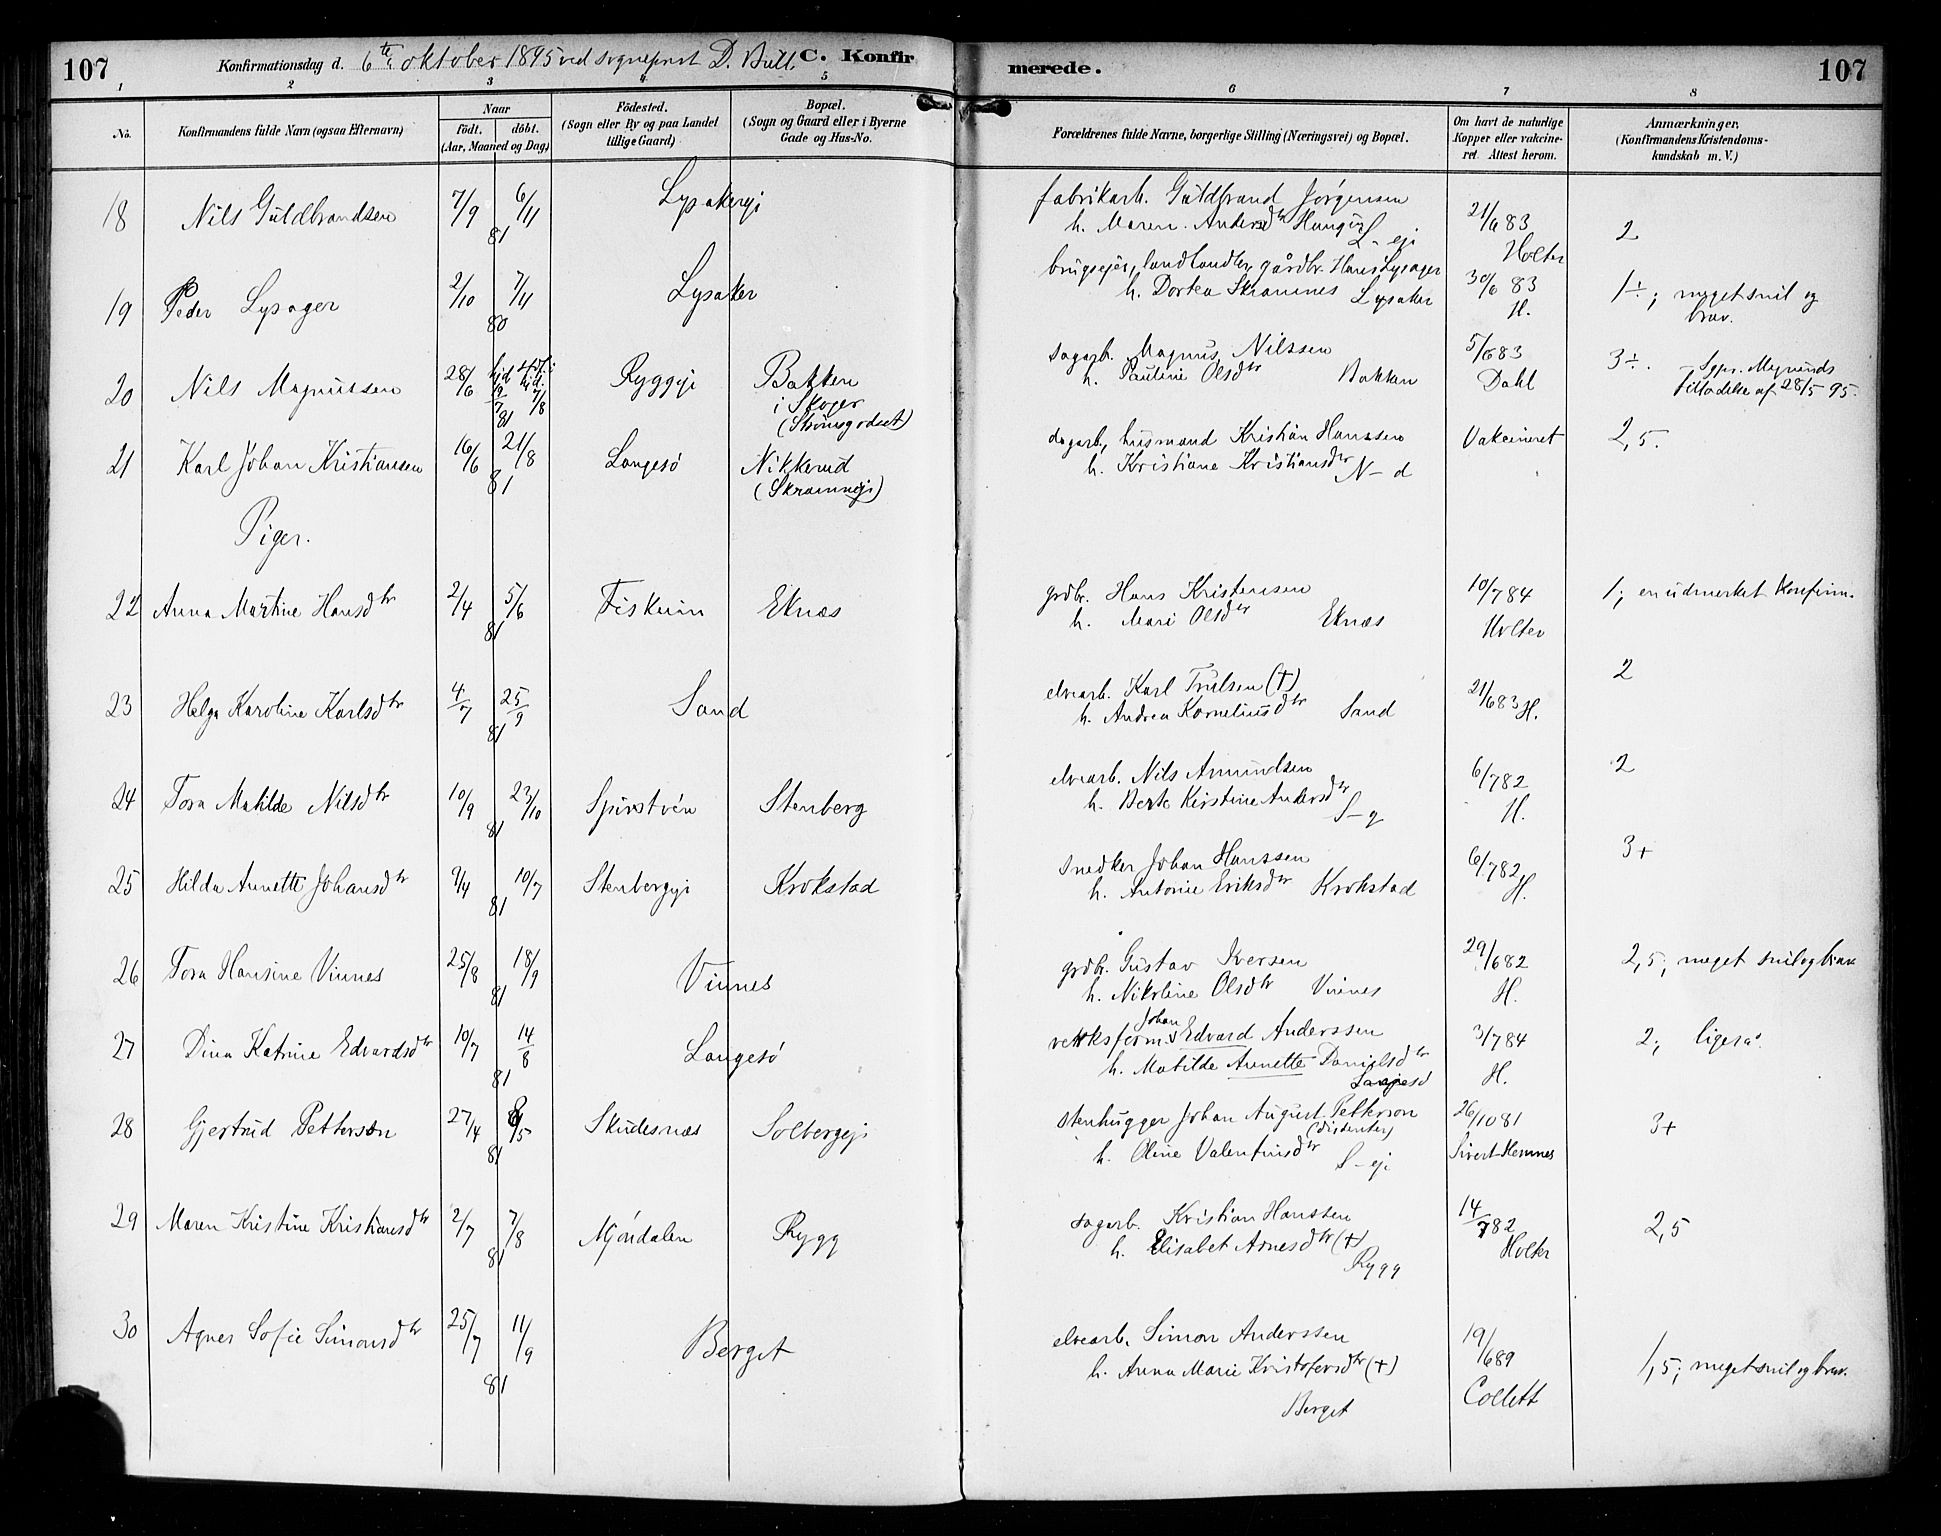 107
Konfirmationsdag d. 6te oktober 1895 ved sogneprest D. Bull.
C. Konfirmerede.
107
1 2 3 4 5 6 7 8
No.
Konfirmandens fulde Navn (ogsaa Efternavn)
Naar
födt. döbt.
(Aar, Maaned og Dag)
Födested.
(Sogn eller By og paa Landet
tillige Gaard)
Bopæl.
(Sogn og Gaard eller i Byerne
Gade og Hus-No.
Forældrenes fulde Navne, borgerlige Stilling (Næringsvei) og Bopæl.
Om havt de naturlige
Kopper eller vakcine-
ret Attest herom.
Anmærkninger,
(Konfirmandens Kristendoms-
kundskab m. V.)
18 Nils Guldbrandsen 7/9 6/11 81 Lysakereji
fabrikarb. Guldbrand Jørgensen
h. Maren Andersdtr L-eji
21/6 83 Holter
2
19 Peder Lysager 2/10 7/11 80 Lysaker
brugsejer, landhandler, gårdbr. Hans Lysager
h. Dortea Skramnes Lysaker
30/6 83 H.
1÷; meget snil og
brav.
20 Nils Magnussen 28/6 81 Ryggeji Bakken
i Skoger
(Strømsgodset)
sagarb. Magnus Nilssen
h. Pauline Olsdtr Bakken
5/6 83 Dahl
3÷. Sgpr. Mynunds
Tilladelse af 28/5 95.
21 Karl Johan Kristiansen 16/6 21/8 81 Langesø Nikkerud
(Skramneji)
dagarb., husmand Kristian Hanssen
h. Kristiane Kristiansdtr N-d
Vakcineret
2,5.
Piger.
22 Anna Martine Hansdtr 2/4 5/6 81 Fiskum Eknæs
grdbr. Hans Kristensen
h. Mari Olsdtr Eknæs
10/7 84 Holter
1; en udmerket konfirm.
23 Helga Karoline Karlsdtr 4/7 25/9 81 Sand
elvearb. Karl Trulsen (†)
h. Andrea Korneliusdtr Sand
21/6 83 H.
2
24 Tora Matilde Nilsdtr 10/9 23/10 81 Spirstvén Stenberg
elvearb. Nils Amundsen
h. Berte Kirstine Andersdtr S-g
6/7 82 H.
2
25 Hilda Annette Johansdtr 9/4 10/7 81 Stenbergeji Krokstad
snedker Johan Hanssen
h. Antonie Eriksdtr Krokstad
6/7 82 H.
3+
26 Tora Hansine Vinnes 25/8 18/9 81 Vinnes
grdbr. Gustav Iversen
h. Nikoline Olsdtr Vinnes
29/6 82 H.
2,5; meget snil og brav
27 Dina Katrine Edvardsdtr 10/7 14/8 81 Langesø
Johan
verksform. Edvard Anderssen
h. Matilde Annette Danielsdtr
Langesø
3/7 84 H.
2; ligeså.
28 Gjertrud Petterson 27/4 8/5 81 Skudesnæs Solbergeji
stenhugger Johan August Petterson
(dissenter)
h. Oline Valentinsdtr S-eji
26/10 81
Sivert Hemnes
3+
29 Maren Kristine Kristiansdtr 2/7 7/8 81 Mjøndalen Rygg
sagarb. Kristian Hanssen
h. Elisabet Arnesdtr (†)
Rygg
14/7 82 Holter
2,5
30 Agnes Sofie Simonsdtr 25/7 11/9 81 Berget
elvearb. Simon Anderssen
h. Anna Marie Kristofersdtr (†)
Berget
19/6 89
Collett
1,5; meget snil og brav.